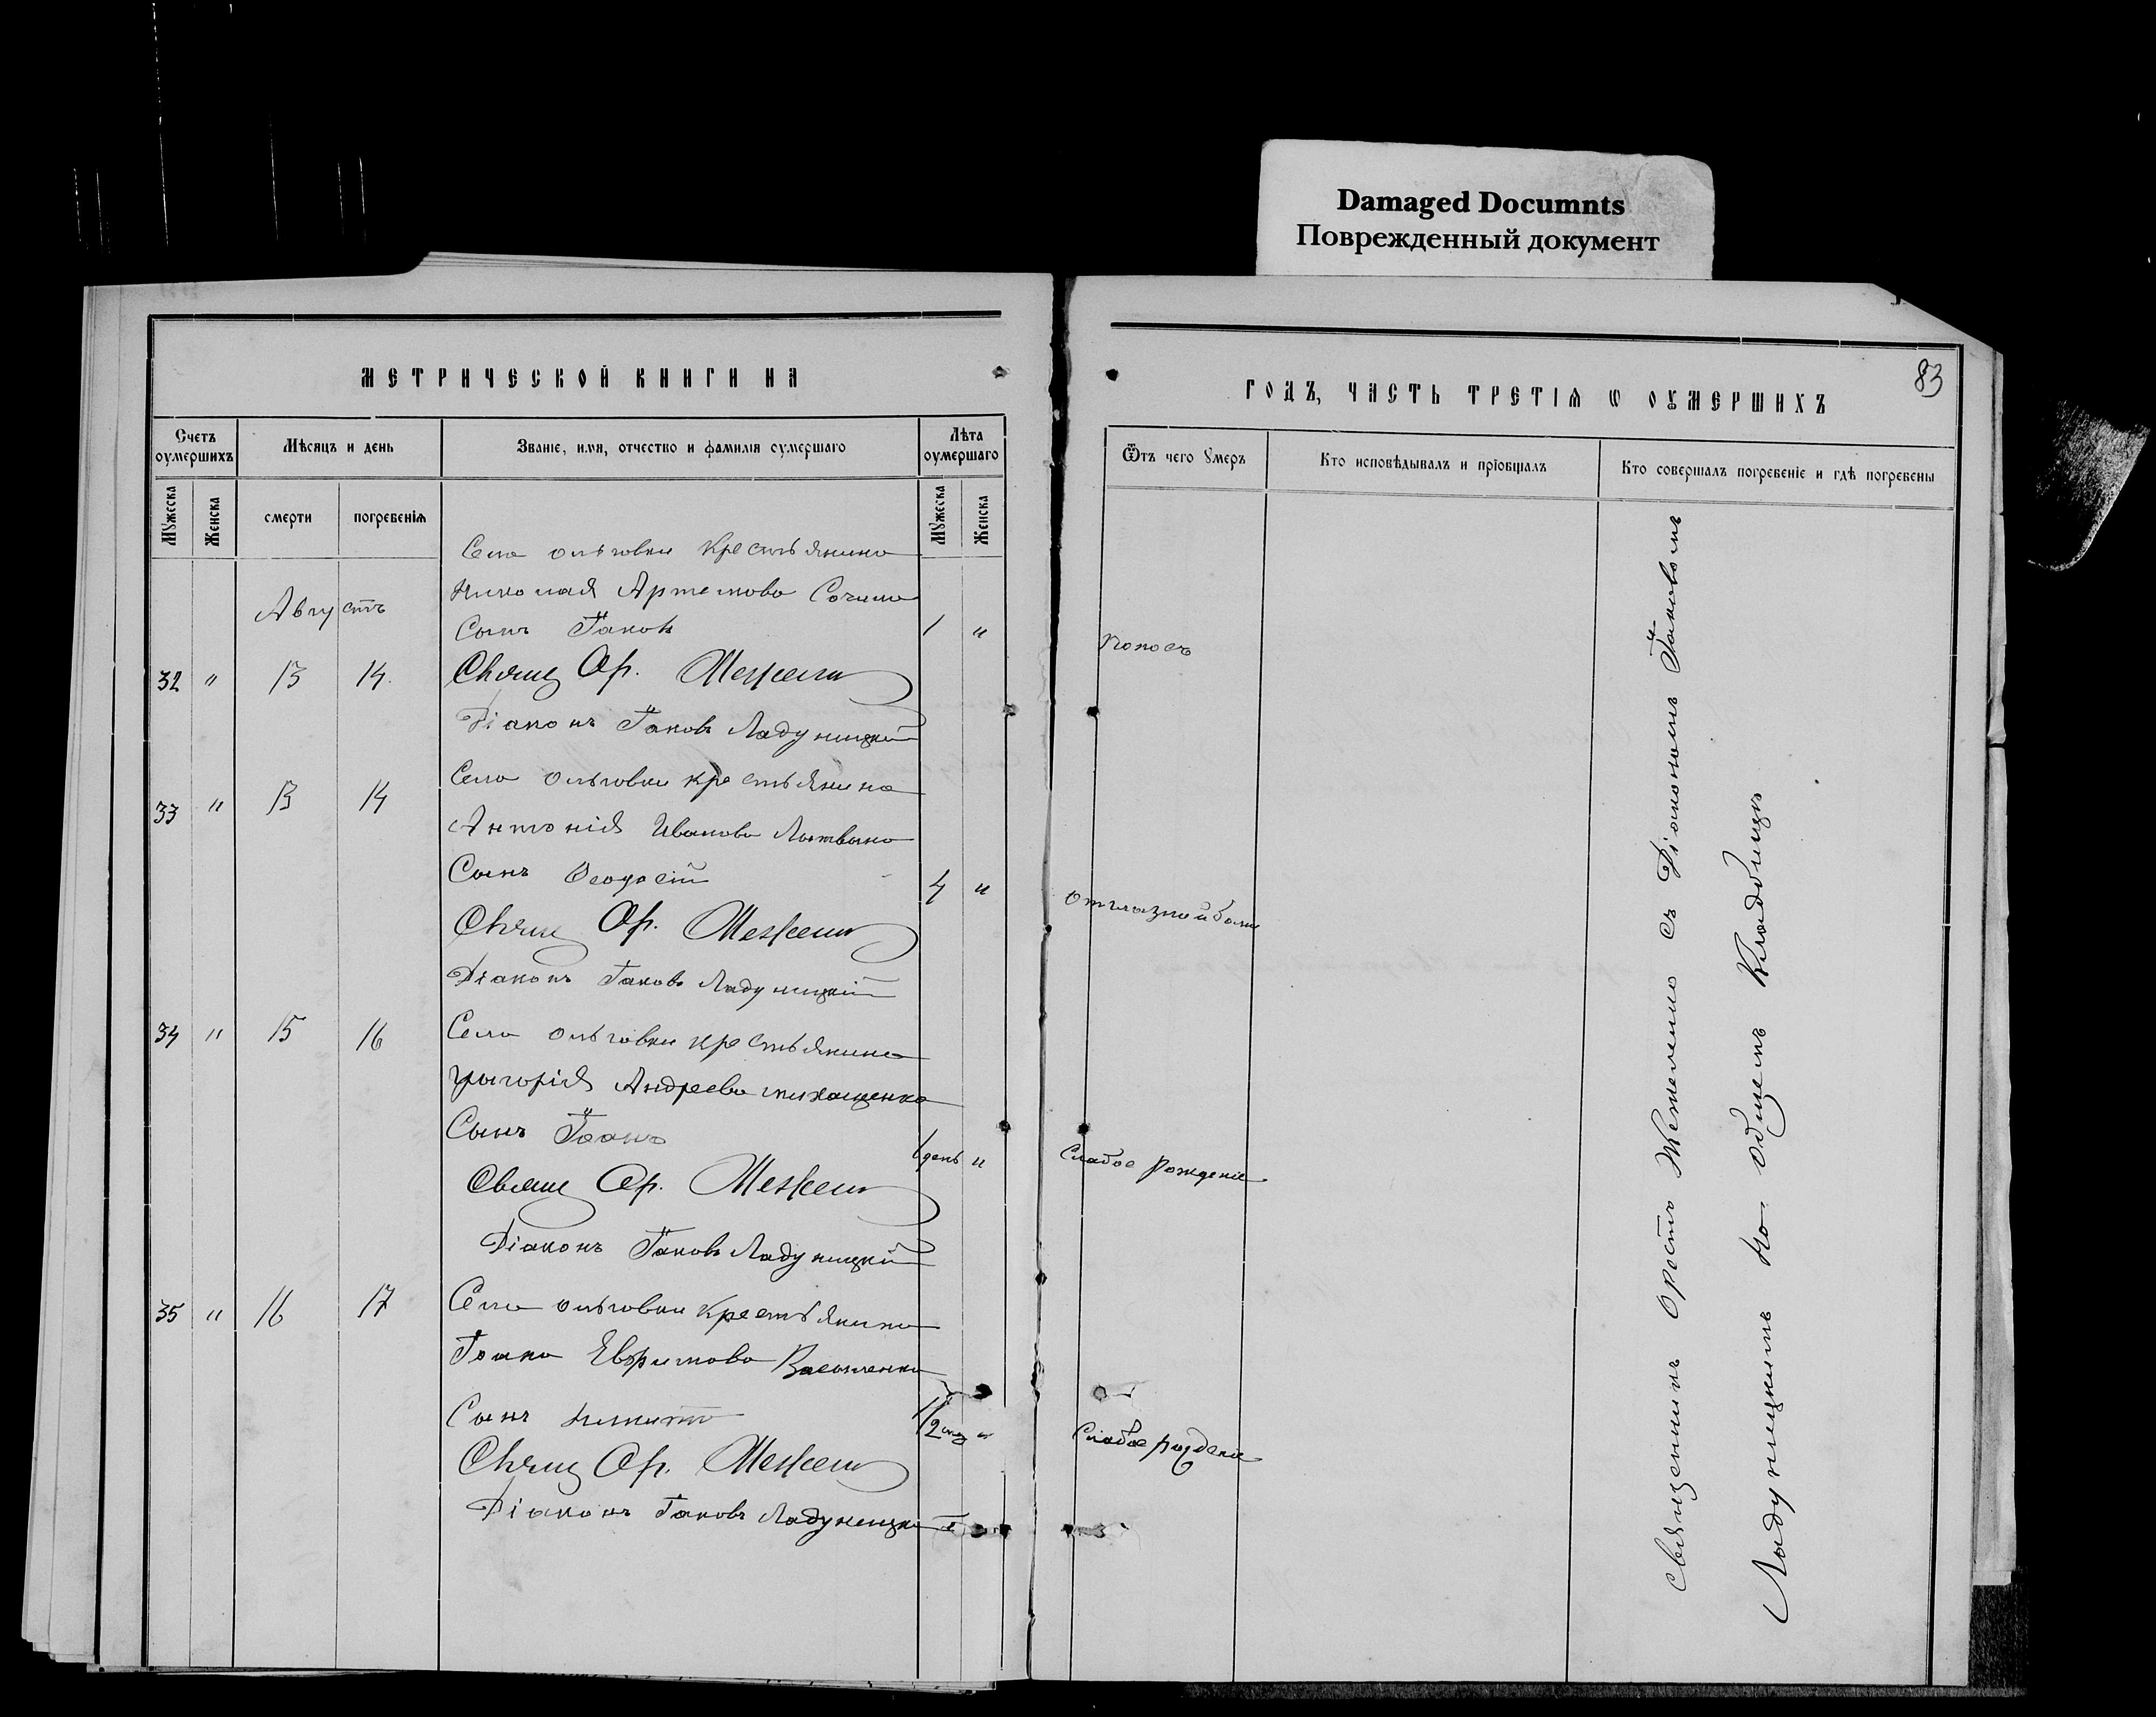 Damaged Documnts
Поврежденный документ
83
МЕТРИЧЕСКОЙ КНИГИ НА
ГОДЪ, ЧАСТЬ ТРЕТІѦ Ѡ ОУМЕРШИХЪ
Счетъ оумершихъ
Мѣсяцъ и день
Званіе, имя, отчество и фамилія оумершаго
Лѣта оумершаго
Ѿтъ чего умеръ
Кто исповѣдывалъ и пріобщалъ
Кто совершалъ погребеніе и гдѣ погребены
Мужеска
Женска
смерти
погребеніѧ
Мужеска
Женска
Августъ
Села ольговки крестьянина
Николая Артемова
Сынъ Іаковъ 1 "
Поносъ
32 " 13 14
Свящ Ор. Межем
Діаконъ Іаковъ Ладуницкій
33 " 13 14
Села ольговки крестьянина
Антонія Иванова Литвина
Сынъ Ѳеодосій 4 "
Свящ Ор. Межем
Діаконъ Іаковъ Ладуницкій
34 " 15 16
Села ольговки крестьянина
Григорія Андреева
Сынъ Іоанъ 1 день "
Слабое рожденіе
Свящ Ор. Межем
Діаконъ Іаковъ Ладуницкій
35 " 16 17
Села ольговки крестьянина
Іоана Евфимова
Сынъ Никита 1/2 "
Слабое
Свящ Ор. Межем
Діаконъ Іаковъ Ладуницкі
Священникъ Орестъ съ Діакономъ Іаковомъ
Ладуницкимъ на общемъ Кладбищѣ